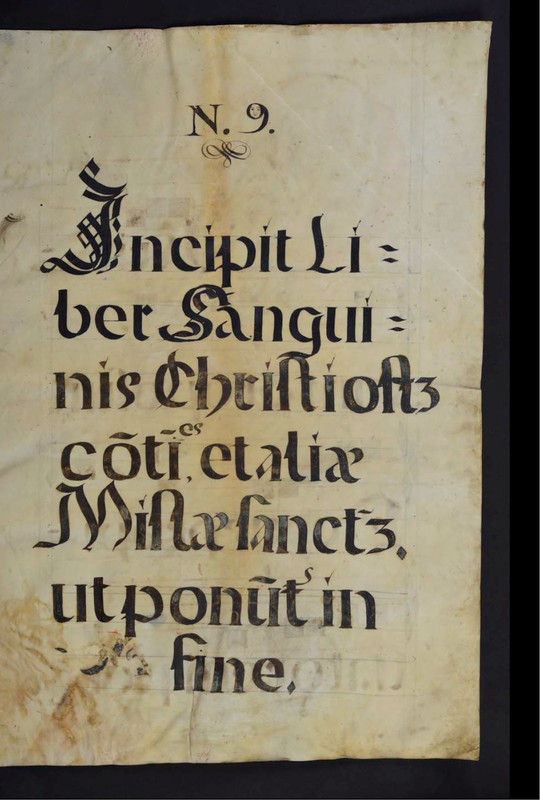 N. 9.
Incipit Li=
ber Sangui=
nis Chriſti oſtꝫ
cōtī,ᵉˢ et aliæ
Miſſæ ſanctꝫ.
ut ponūtˢ in
fine.